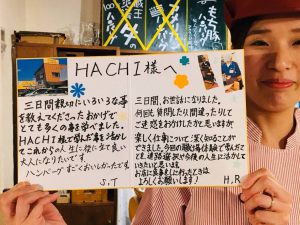 HACHI様へ
三日間親切にいろいろな事
を教えてくださったおかげで
とても多くの事を学べました。
HACHI様で学んだ事を活かし
てこれからの人生に役に立て良い
大人になりたいです
ハンバーグすごくおいしかったです
S.T
三日間、お世話になりました。
何回も質問したり、間違ったりして
ご迷惑をおかけしたかと思いますが、
楽しく仕事について深く知ることが
できました。今回の職場体験で学んだこ
とを、進路選択や今後の人生に活かして
いきたいと思います。
お店に食事をしに行ったときは
よろしくお願いします!
H.R